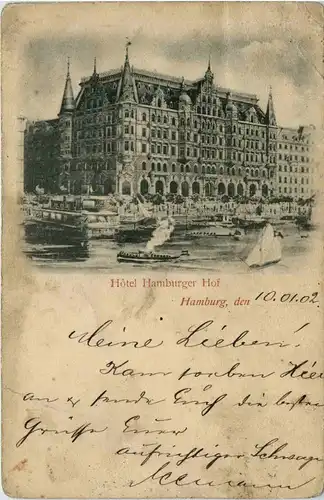 Hôtel Hamburger Hof
Hamburg, den 10.01.02.
Meine Lieben!
Kam soeben Hier
an & sende Euch die besten
Grüsse Euer
aufrichtiger Schwager